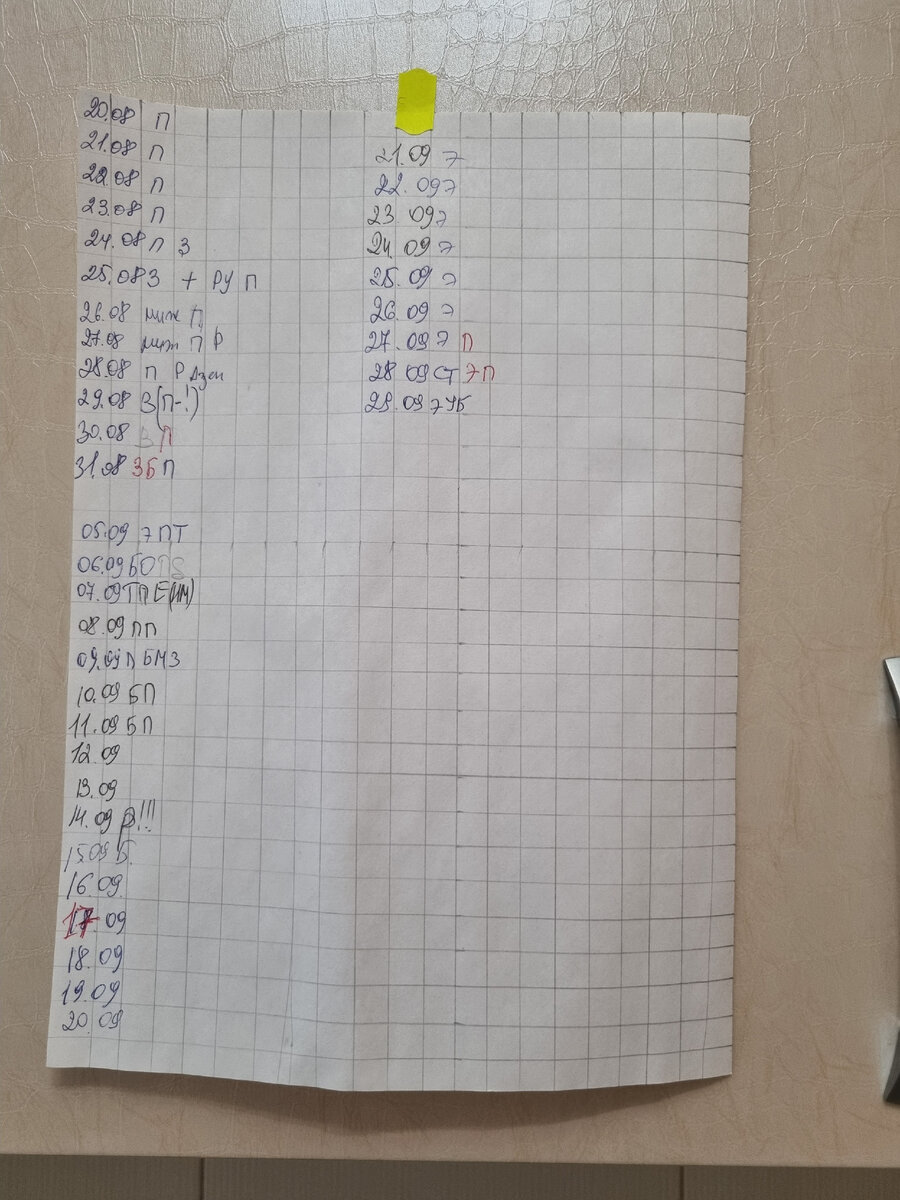 20.08 П
21.08 П
22.08 П
23.08 П
24.08 П З
25.08 З + РУ П
26.08 П
27.08 П Р
28.08 П Р Дзен
29.08 В(П-!)
30.08 В П
31.08 ЗБ П
05.09 Э ПТ
06.09 БО
07.09 ТПЕ(ИМ)
08.09 ПП
09.09 П БМЗ
10.09 БП
11.09 БП
12.09
13.09
14.09 Р!!!
15.09 Б.
16.09.
17.09
18.09
19.09
20.09
21.09 Э
22.09 Э
23 09 Э
24.09 Э
25.09 Э
26.09 Э
27.09 Э П
28 09 СТ Э П
29.09 Э УБ